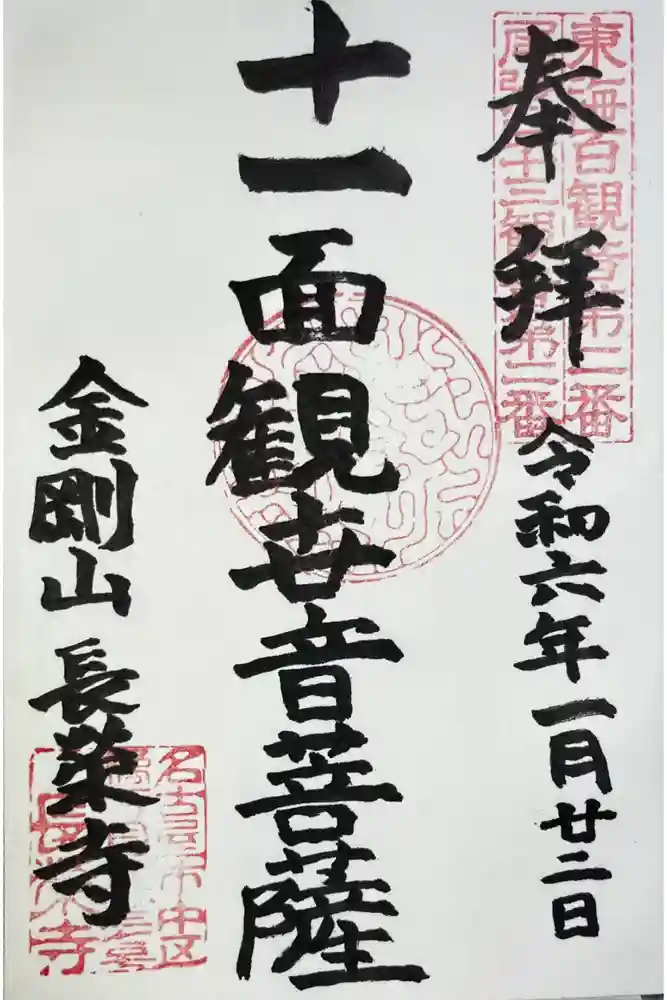 東海百観音第二番
尾張三十三観音第二番
奉拝
令和六年一月廿二日
十一面観世音菩薩
金剛山 長榮寺
名古屋市中区
長栄寺